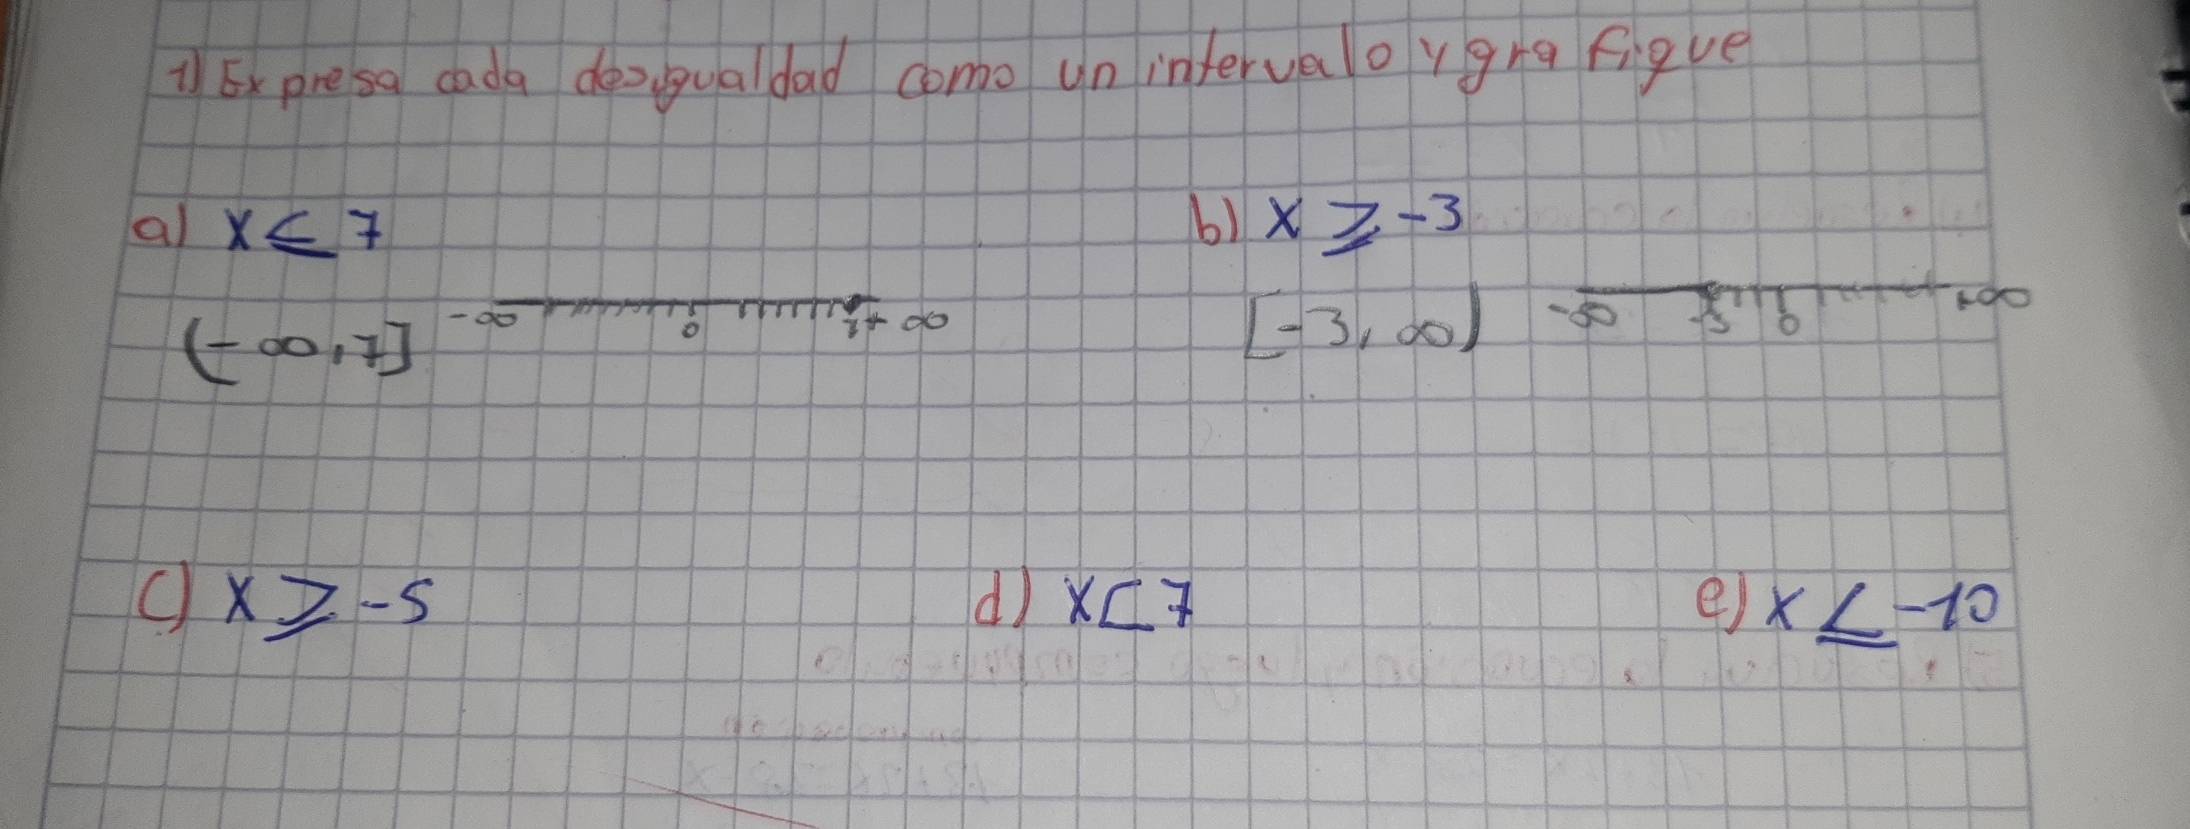 1) Expresa cada desigualdad como un intervalo y grafique
a) x ≤ 7
b) x ≥ -3
(-∞, 7] -∞ 0 7 +∞
[-3, ∞) -∞ -3 0 +∞
c) x ≥ -5
d) x < 7
e) x ≤ -10